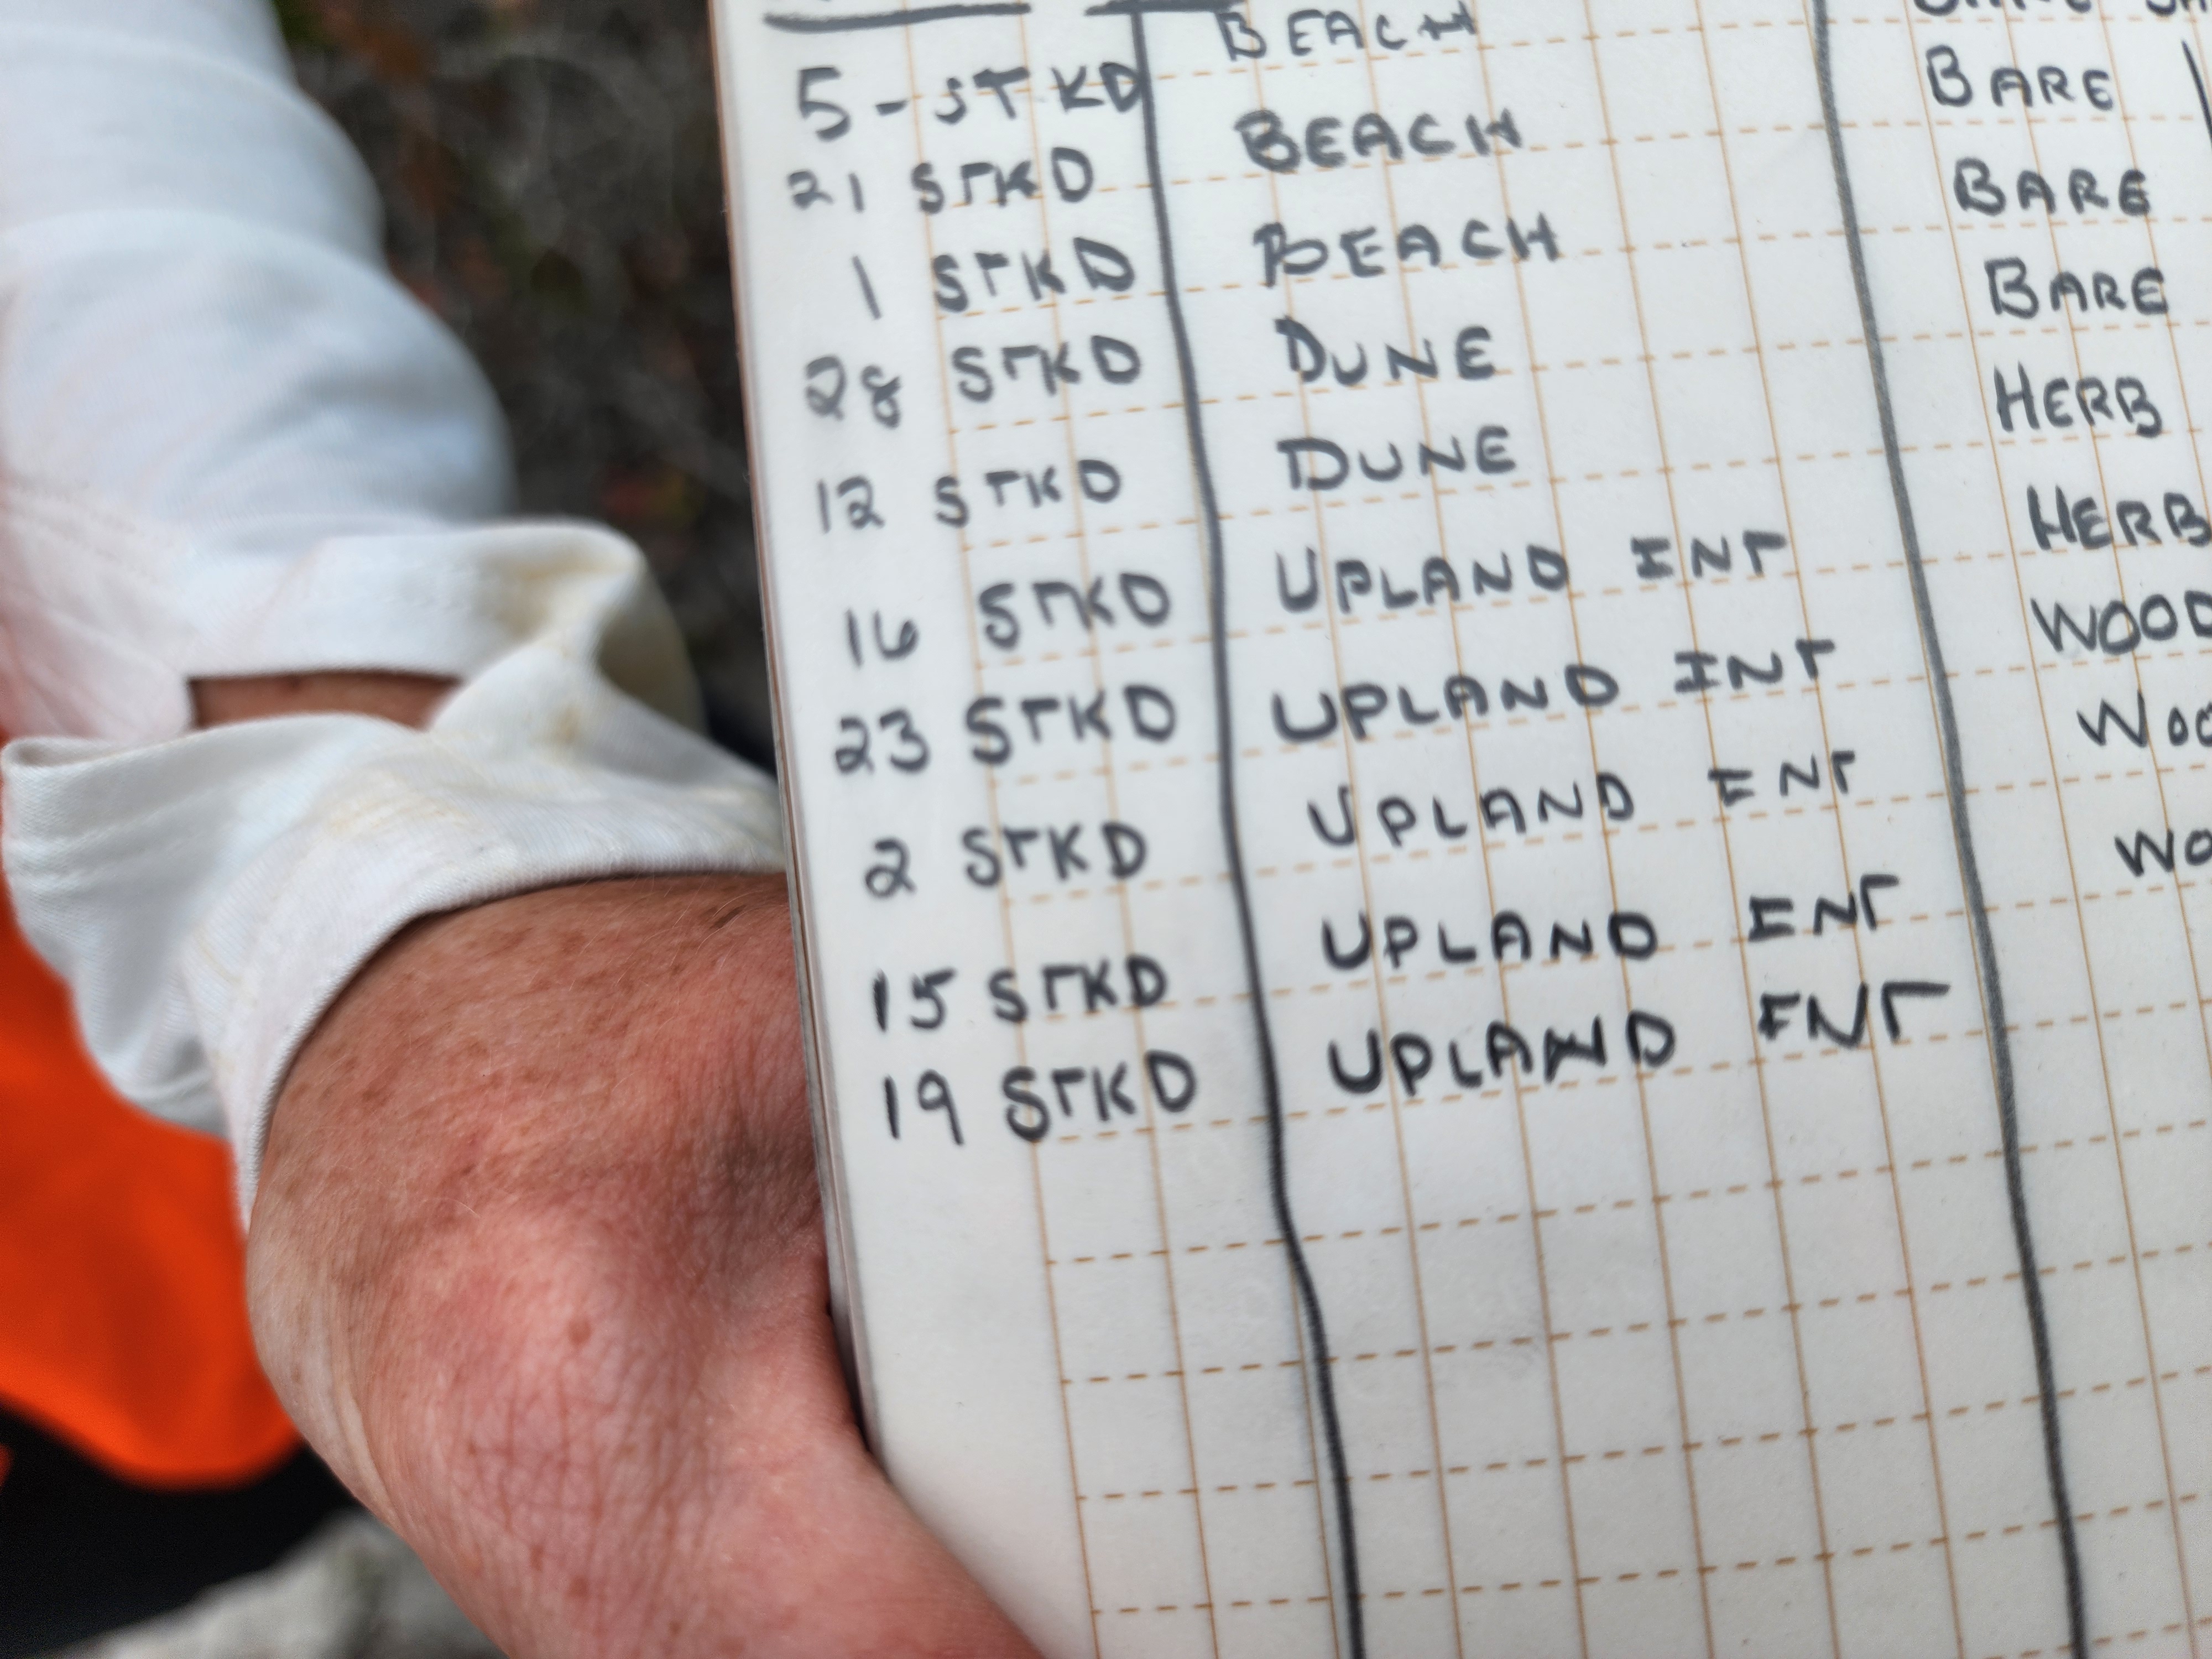 5 - STKD BEACH
21 STKD BEACH BARE
1 STKD BEACH BARE
28 STKD DUNE BARE
12 STKD DUNE HERB
16 STKD UPLAND INT HERB
23 STKD UPLAND INT WOOD
2 STKD UPLAND INT WOO
15 STKD UPLAND INT WO
19 STKD UPLAND INT